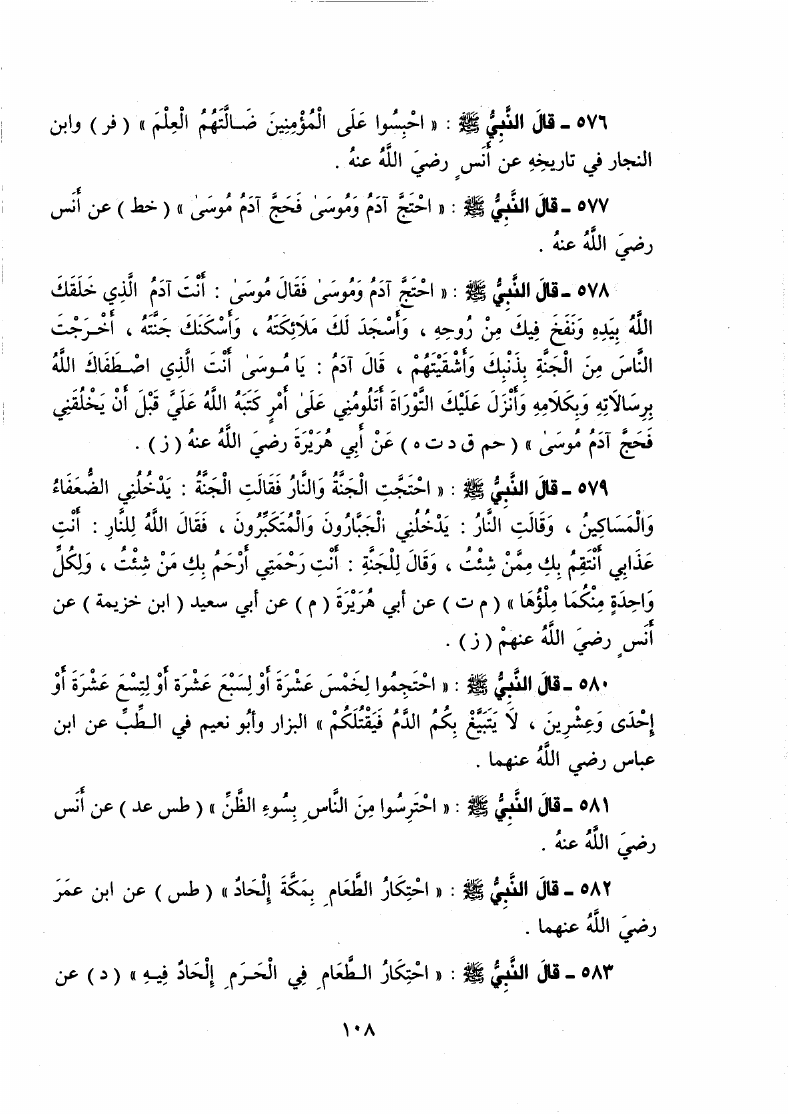 ٥٧٦ ـ قالَ النَّبِيُّ ﷺ : « احْبِسُوا عَلَى الْمُؤْمِنِينَ ضَالَّتَهُمُ الْعِلْمَ » ( فر ) وابن
النجار في تاريخِهِ عن أَنَسٍ رضيَ اللَّهُ عنهُ .
٥٧٧ ـ قالَ النَّبِيُّ ﷺ : « احْتَجَّ آدَمُ وَمُوسَىٰ فَحَجَّ آدَمُ مُوسَىٰ » ( خط ) عن أَنس
رضيَ اللَّهُ عنهُ .
٥٧٨ ـ قالَ النَّبِيُّ ﷺ : « احْتَجَّ آدَمُ وَمُوسَىٰ فَقَالَ مُوسَىٰ : أَنْتَ آدَمُ الَّذِي خَلَقَكَ
اللَّهُ بِيَدِهِ وَنَفَخَ فِيكَ مِنْ رُوحِهِ ، وَأَسْجَدَ لَكَ مَلَائِكَتَهُ ، وَأَسْكَنَكَ جَنَّتَهُ ، أَخْرَجْتَ
النَّاسَ مِنَ الْجَنَّةِ بِذَنْبِكَ وَأَشْقَيْتَهُمْ ، قَالَ آدَمُ : يَا مُوسَىٰ أَنْتَ الَّذِي اصْطَفَاكَ اللَّهُ
بِرِسَالَاتِهِ وَبِكَلَامِهِ وَأَنْزَلَ عَلَيْكَ التَّوْرَاةَ أَتَلُومُنِي عَلَىٰ أَمْرٍ كَتَبَهُ اللَّهُ عَلَيَّ قَبْلَ أَنْ يَخْلُقَنِي
فَحَجَّ آدَمُ مُوسَىٰ » ( حم ق د ت ه ) عَنْ أَبِي هُرَيْرَةَ رضيَ اللَّهُ عنهُ ( ز ) .
٥٧٩ ـ قالَ النَّبِيُّ ﷺ : « احْتَجَّتِ الْجَنَّةُ وَالنَّارُ فَقَالَتِ الْجَنَّةُ : يَدْخُلُنِي الضُّعَفَاءُ
وَالْمَسَاكِينُ ، وَقَالَتِ النَّارُ : يَدْخُلُنِي الْجَبَّارُونَ وَالْمُتَكَبِّرُونَ ، فَقَالَ اللَّهُ لِلنَّارِ : أَنْتِ
عَذَابِي أَنْتَقِمُ بِكِ مِمَّنْ شِئْتُ ، وَقَالَ لِلْجَنَّةِ : أَنْتِ رَحْمَتِي أَرْحَمُ بِكِ مَنْ شِئْتُ ، وَلِكُلِّ
وَاحِدَةٍ مِنْكُمَا مِلْؤُهَا » ( م ت ) عن أبي هُرَيْرَةَ ( م ) عن أبي سعيد ( ابن خزيمة ) عن
أَنَسٍ رضيَ اللَّهُ عنهمْ ( ز ) .
٥٨٠ ـ قالَ النَّبِيُّ ﷺ : « احْتَجِمُوا لِخَمْسَ عَشْرَةَ أَوْ لِسَبْعَ عَشْرَةَ أَوْ لِتِسْعَ عَشْرَةَ أَوْ
إِحْدَى وَعِشْرِينَ ، لَا يَتَبَيَّغْ بِكُمُ الدَّمُ فَيَقْتُلَكُمْ » البزار وأَبُو نعيم في الطِّبِّ عن ابن
عباس رضي اللَّهُ عنهما .
٥٨١ ـ قالَ النَّبِيُّ ﷺ : « احْتَرِسُوا مِنَ النَّاسِ بِسُوءِ الظَّنِّ » ( طس عد ) عن أَنَس
رضيَ اللَّهُ عنهُ .
٥٨٢ ـ قالَ النَّبِيُّ ﷺ : « احْتِكَارُ الطَّعَامِ بِمَكَّةَ إِلْحَادٌ » ( طس ) عن ابن عمَرَ
رضيَ اللَّهُ عنهما .
٥٨٣ ـ قالَ النَّبِيُّ ﷺ : « احْتِكَارُ الطَّعَامِ فِي الْحَرَمِ إِلْحَادٌ فِيهِ » ( د ) عن
١٠٨